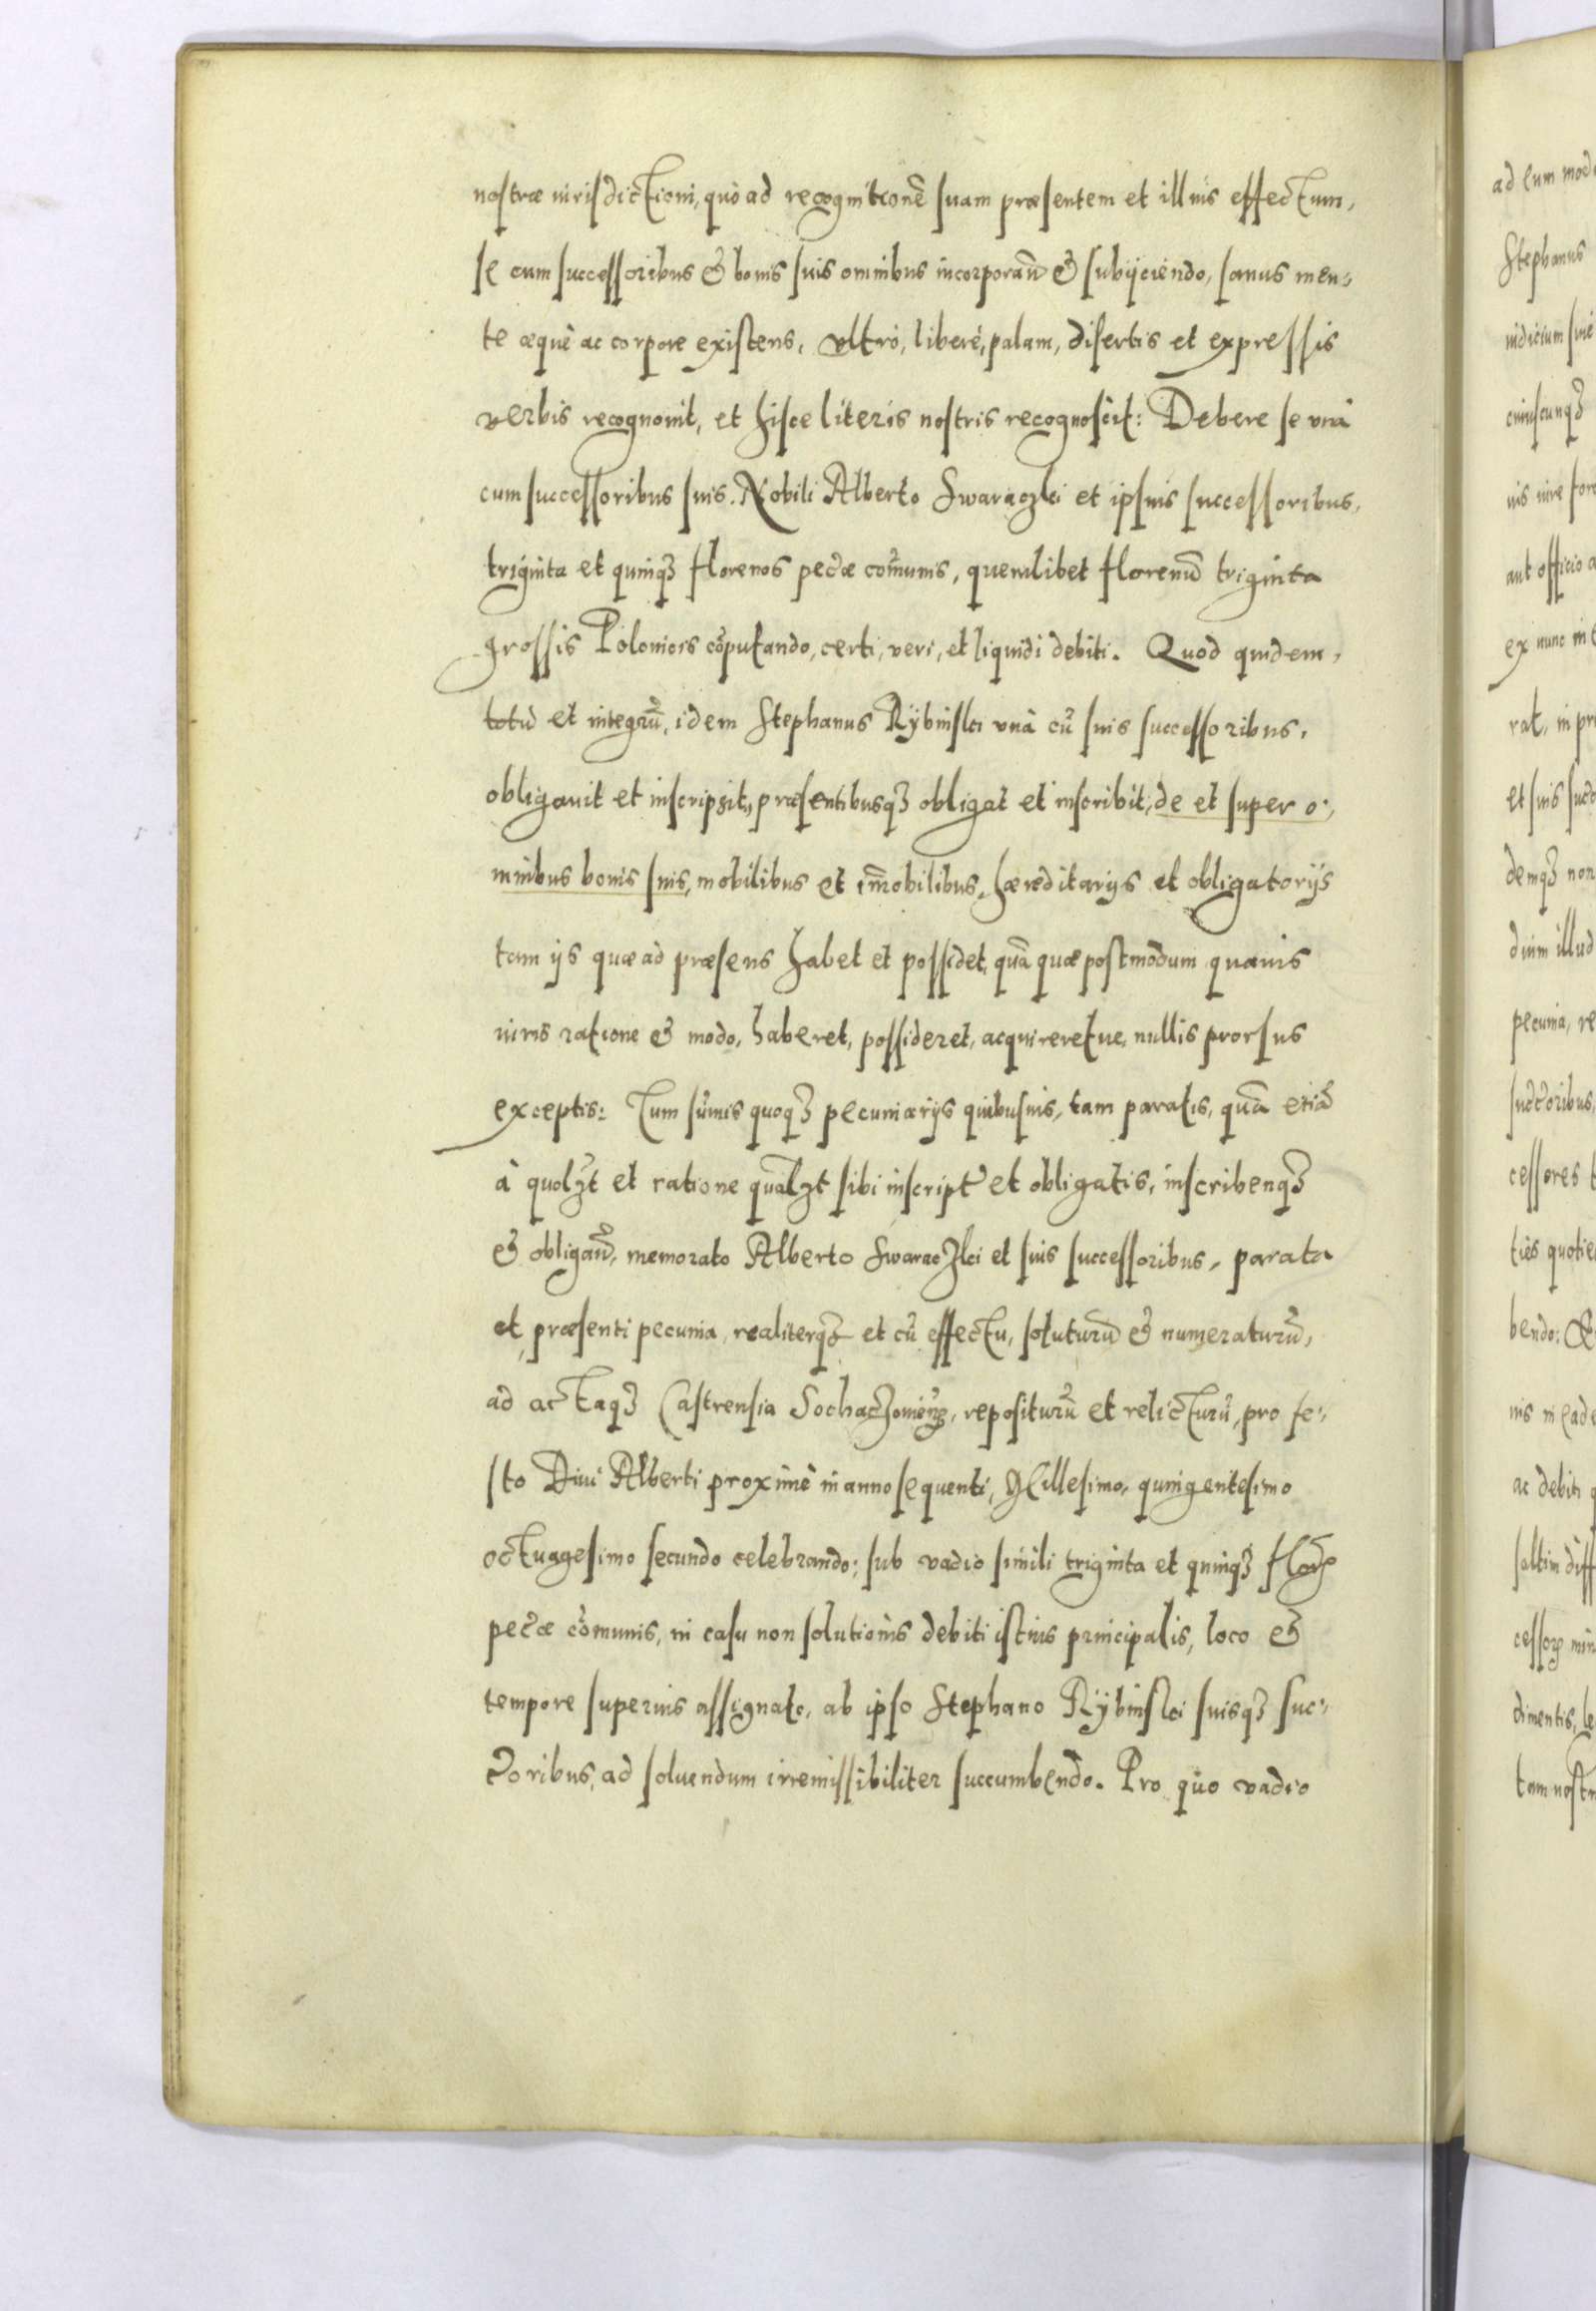 nostræ iurisdictioni, quò ad recognitionē suam præsentem et illius effectum,
se cum successoribus & bonis suis omnibus incorporań & subijciendo, sanus men-
te æquè ac corpore existens, vltrò, liberè, palam, disertis et expressis
verbis recognouit, et hisce literis nostris recognoscit: Debere se vnà
cum successoribus suis Nobili Alberto Swaraczki et ipsius successoribus,
triginta et quinqꝫ florenos pec̃æ com̃unis, quemlibet florenũ triginta
grossis Polonicis cõputando, certi, veri, et liquidi debiti. Quod quidem,
totũ et integrũ, idem Stephanus Rÿbinski vnà cũ suis successoribus,
obligauit et inscripsit, præsentibusqꝫ obligat et inscribit, de et super o-
mnibus bonis suis, mobilibus et im̃obilibus, hæreditarijs et obligatorijs
tam ijs quæ ad præsens habet et possidet, quã quæ postmodum quauis
iuris ratione & modo, haberet, possideret, acquireretue, nullis prorsus
exceptis: Tum sum̃is quoqꝫ pecuniarijs quibusuis, tam paratis, quã etiã
à quolꝫt et ratione qualꝫt sibi inscript̃ et obligatis, inscribenqꝫ
& obligañ, memorato Alberto Swaraczki et suis successoribus, parata
et præsenti pecunia, realiterqꝫ et cũ effectu, soluturũ & numeraturũ,
ad actaqꝫ Castrensia Sochaczouieñ, repositurũ et relicturũ, pro fe-
sto Diui Alberti proximè in anno sequenti, Millesimo, quingentesimo
octuagesimo secundo celebrando; sub vadio simili triginta et quinqꝫ flor̃
pec̃æ cõmunis, in casu non solutionis debiti istius principalis, loco &
tempore superius assignato, ab ipso Stephano Rÿbinski suisqꝫ suc-
c̃oribus, ad soluendum irremissibiliter succumbendo. Pro quo vadio
ad eum mod
Stephanus
iudicium siue
cuiuscunqꝫ
uis iure fore
aut officio a
ex nunc in
rat, in pr
et suis suc
demqꝫ non
duim illud
pecunia, re
succ̃oribus,
cessores t
ties quotie
bendo:
uis in eade
ac debiti q
saltim diff
dimentis, le
tam nostr